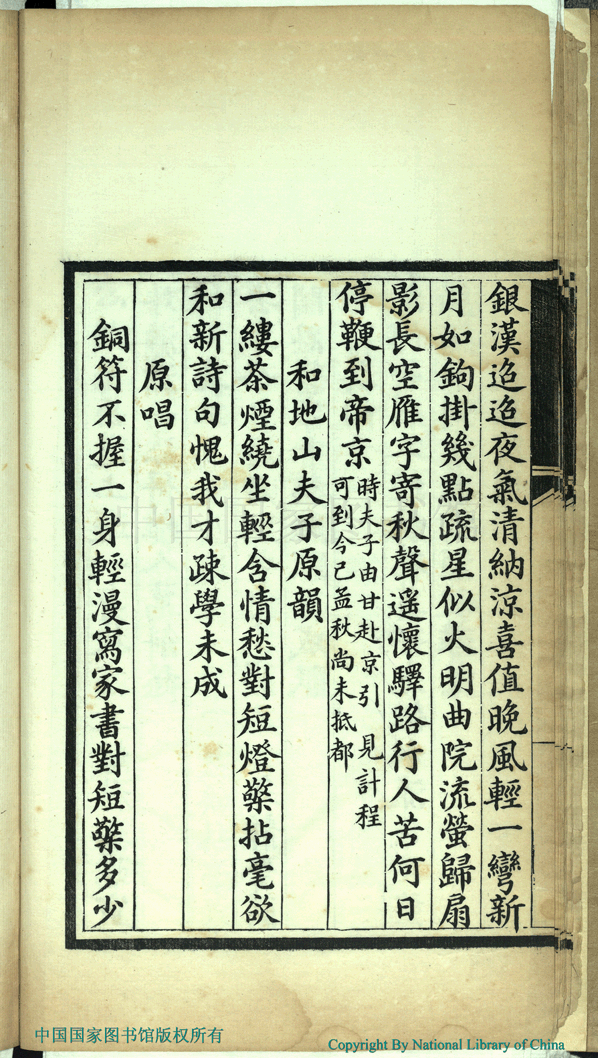 銀漢迢迢夜氣清納涼喜值晚風輕一彎新
月如鉤掛幾點疏星似火明曲院流螢歸扇
影長空雁字寄秋聲遥懷驛路行人苦何日
停鞭到帝京時夫子由甘赴京引見計程
可到今已孟秋尚未抵都
和地山夫子原韻
一縷茶煙繞坐輕含情愁對短燈檠拈毫欲
和新詩句愧我才疎學未成
原唱
銅符不握一身輕漫寫家書對短檠多少
中国国家图书馆版权所有
Copyright By National Library of China